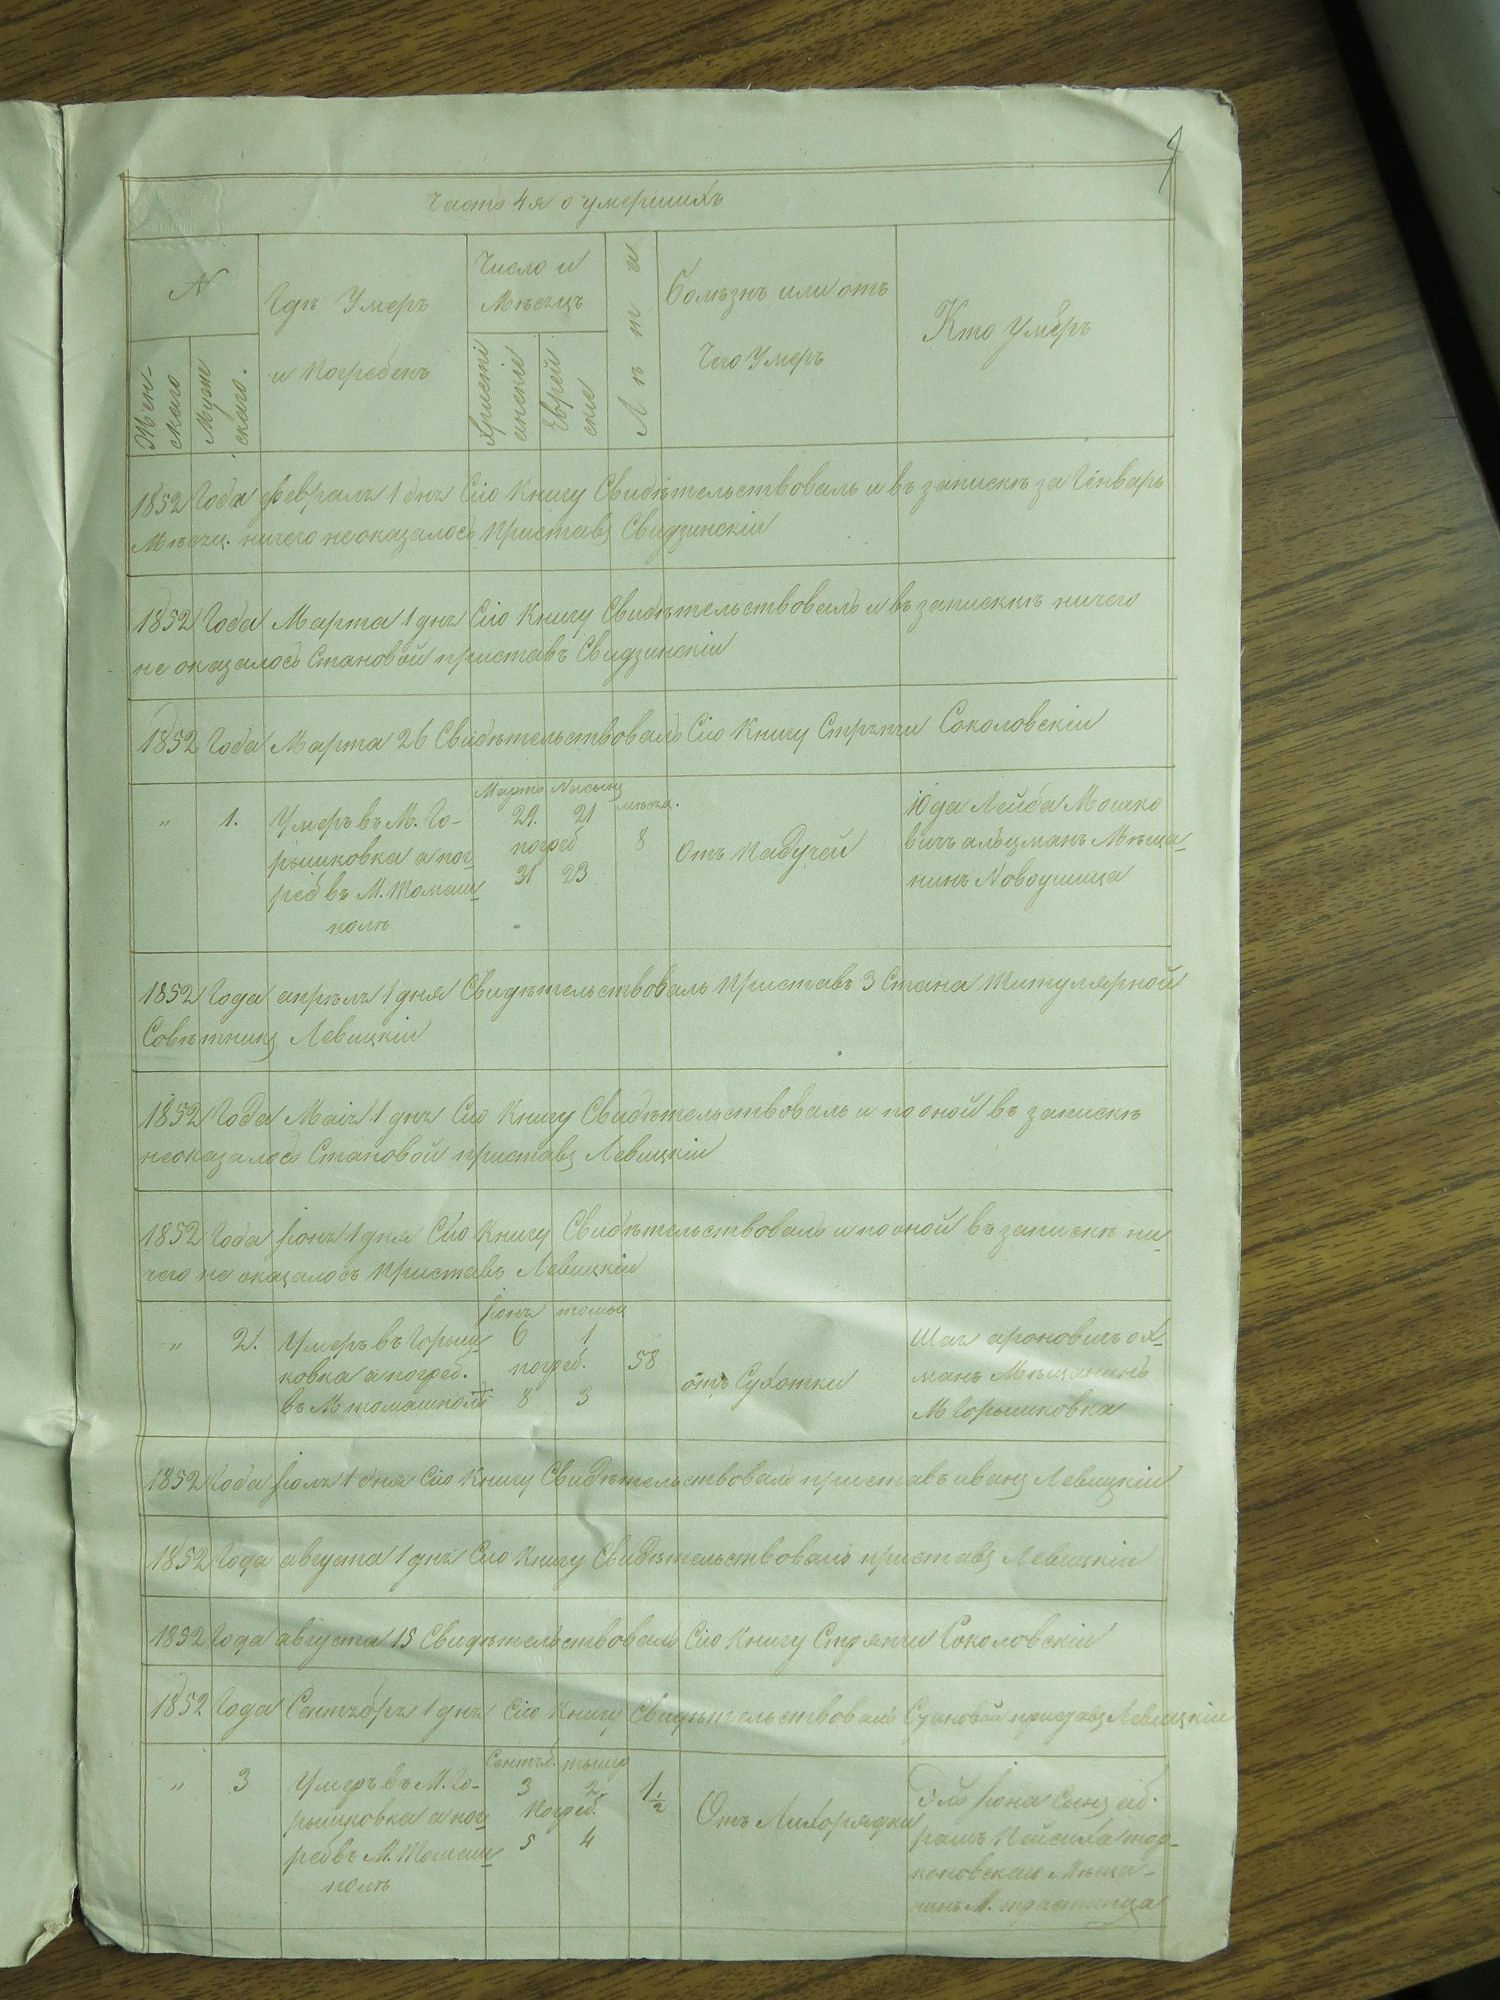 Часть 4я о умершихъ
N
Жен-
скаго
Муже
скаго.
Гдѣ Умеръ
и погребенъ
Число и
Мѣсецъ
Христі
анскіе
Еврей
ские
Лѣта
Болѣзнь или отъ
чего Умеръ
Кто Умеръ
1852 Года февраля 1 дня Сію Книгу Свидѣтельствовалъ и въ запискѣ за Генварь
Мѣсяц. ничего неоказалось Приставъ Свидзинскіи
1852 Года Марта 1 дня Сію Книгу Свидѣтельствовалъ и въ запискѣ ничего
не оказалось Становой приставъ Свидзинскіи
1852 Года Марта 26 Свидѣтельствовалъ Сію Книгу Стряпчи Соколовскіи
" 1. Умеръ въ М. Го-
рышковка а пог
реб въ М. Томаш
полѣ
Мартъ Нысынъ
29. 21
погреб
31 23
мѣсец.
8
Отъ Падучей
Юда Лейба Мошко
вичъ альцманъ Мѣща-
нинъ Новоушица
1852 Года апрѣля 1 дня Свидѣтельствовалъ Приставъ 3 Стана Титулярной
Совѣтникъ Левицкіи
1852 Года Маія 1 дня Сію Книгу Свидѣтельствовалъ и по оной въ запискѣ
неоказалось Становой приставъ Левицкіи
1852 Года Іюня 1 дня Сію Книгу Свидѣтельствовалъ и по оной въ запискѣ ни-
чего не оказалось Приставъ Левицкіи
" 2. Умеръ въ Горыш
ковка а погреб.
въ М томашполѣ
Іюня
6 1
погреб.
8 3
58
отъ Сухотки
ароновичъ ох-
манъ Мѣщанинъ
М Горышковка
1852 Года Іюля 1 дня Сію Книгу Свидѣтельствовалъ приставъ иванъ Левицкіи
1852 Года августа 1 дня Сію Книгу Свидѣтельствовалъ приставъ Левицкіи
1852 Года августа 15 Свидѣтельствовалъ Сію Книгу Стряпчи Соколовскіи
1852 Года Сентября 1 дня Сію Книгу Свидѣтельствовалъ Становой приставъ Левицкіи
" 3 Умеръ въ М. Го-
рышковка а пог
реб въ М. Томаш
полѣ
Сентяб. тышр
3 2
Погреб.
5 4
1 1/2
Отъ Лихорядки
Іона Сынъ аб-
рамъ Пейсиха
Мѣща-
нинъ М.